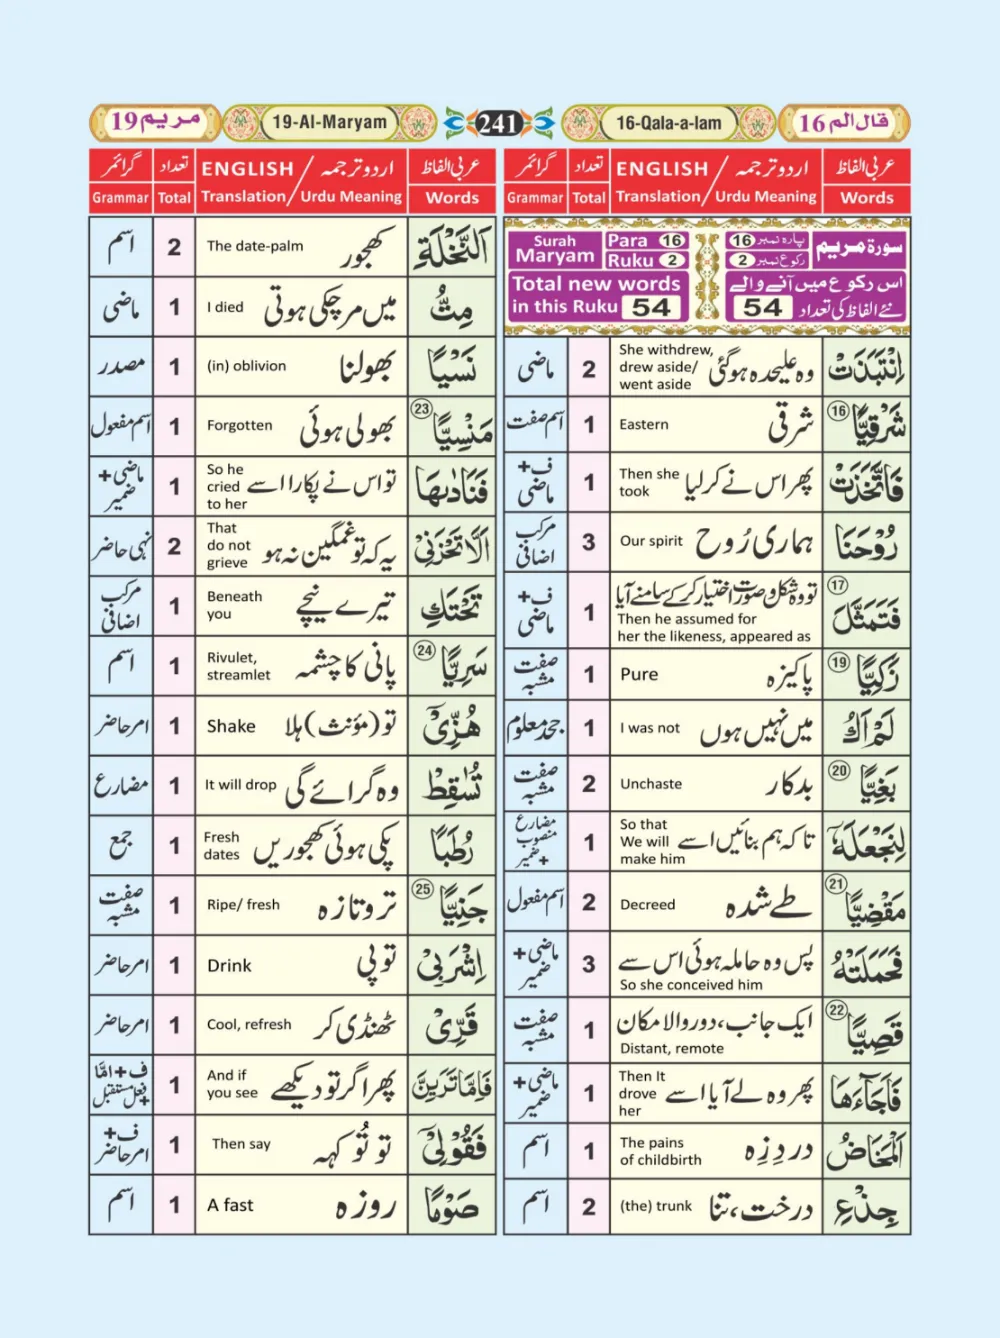 19 مریم
19-Al-Maryam
241
16-Qala-a-lam
قال الم 16
عربی الفاظ اردو ترجمہ / ENGLISH تعداد گرائمر
Words Urdu Meaning / Translation Total Grammar
سورة مریم پارہ نمبر 16 رکوع نمبر 2
Surah Maryam Para 16 Ruku 2
اس رکوع میں آنے والے نئے الفاظ کی تعداد 54
Total new words in this Ruku 54
اِنْتَبَذَتْ وہ علیحدہ ہوگئی She withdrew, drew aside/ went aside 2 ماضی
شَرْقِيًّا ⑯ شرقی Eastern 1 اسم صفت
فَاتَّخَذَتْ پھر اس نے کرلیا Then she took 1 ف+ ماضی
رُوْحَنَا ہماری رُوح Our spirit 3 مرکب اضافی
فَتَمَثَّلَ ⑰ تو وہ شکل وصورت اختیار کرکے سامنے آیا Then he assumed for her the likeness, appeared as 1 ف+ ماضی
زَكِيًّا ⑲ پاکیزہ Pure 1 صفت مشبہ
لَمْ اَكُ میں نہیں ہوں I was not 1 جحد معلوم
بَغِيًّا ⑳ بدکار Unchaste 2 صفت مشبہ
لِنَجْعَلَهٗٓ تاکہ ہم بنائیں اسے So that We will make him 1 مضارع منصوب +ضمیر
مَقْضِيًّا ㉑ طے شدہ Decreed 2 اسم مفعول
فَحَمَلَتْهُ پس وہ حاملہ ہوئی اس سے So she conceived him 3 ماضی+ ضمیر
قَصِيًّا ㉒ ایک جانب، دور والا مکان Distant, remote 1 صفت مشبہ
فَاَجَآءَهَا پھر وہ لے آیا اسے Then It drove her 1 ماضی+ ضمیر
الْمَخَاضُ دردِزِہ The pains of childbirth 1 اسم
جِذْعِ درخت، تنا (the) trunk 2 اسم
عربی الفاظ اردو ترجمہ / ENGLISH تعداد گرائمر
Words Urdu Meaning / Translation Total Grammar
اَلنَّخْلَةِ کھجور The date-palm 2 اسم
مِتُّ میں مرچکی ہوتی I died 1 ماضی
نَسْيًا بھولنا (in) oblivion 1 مصدر
مَنْسِيًّا ㉓ بھولی ہوئی Forgotten 1 اسم مفعول
فَنَادٰىهَا تو اس نے پکارا اسے So he cried to her 1 ماضی+ ضمیر
اَلَّا تَحْزَنِيْ یہ کہ تو غمگین نہ ہو That do not grieve 2 نہی حاضر
تَحْتَكِ تیرے نیچے Beneath you 1 مرکب اضافی
سَرِيًّا ㉔ پانی کا چشمہ Rivulet, streamlet 1 اسم
هُزِّيْٓ تو (مؤنث) ہلا Shake 1 امر حاضر
تُسٰقِطْ وہ گرائے گی It will drop 1 مضارع
رُطَبًا پکی ہوئی کھجوریں Fresh dates 1 جمع
جَنِيًّا ㉕ تروتازہ Ripe/ fresh 1 صفت مشبہ
اِشْرَبِيْ تو پی Drink 1 امر حاضر
قَرِّيْ ٹھنڈی کر Cool, refresh 1 امر حاضر
فَاِمَّا تَرَيِنَّ پھر اگر تو دیکھے And if you see 1 ف+امَّا +فعل مستقبل
فَقُوْلِيْٓ تو تُو کہہ Then say 1 ف+ امر حاضر
صَوْمًا روزہ A fast 1 اسم